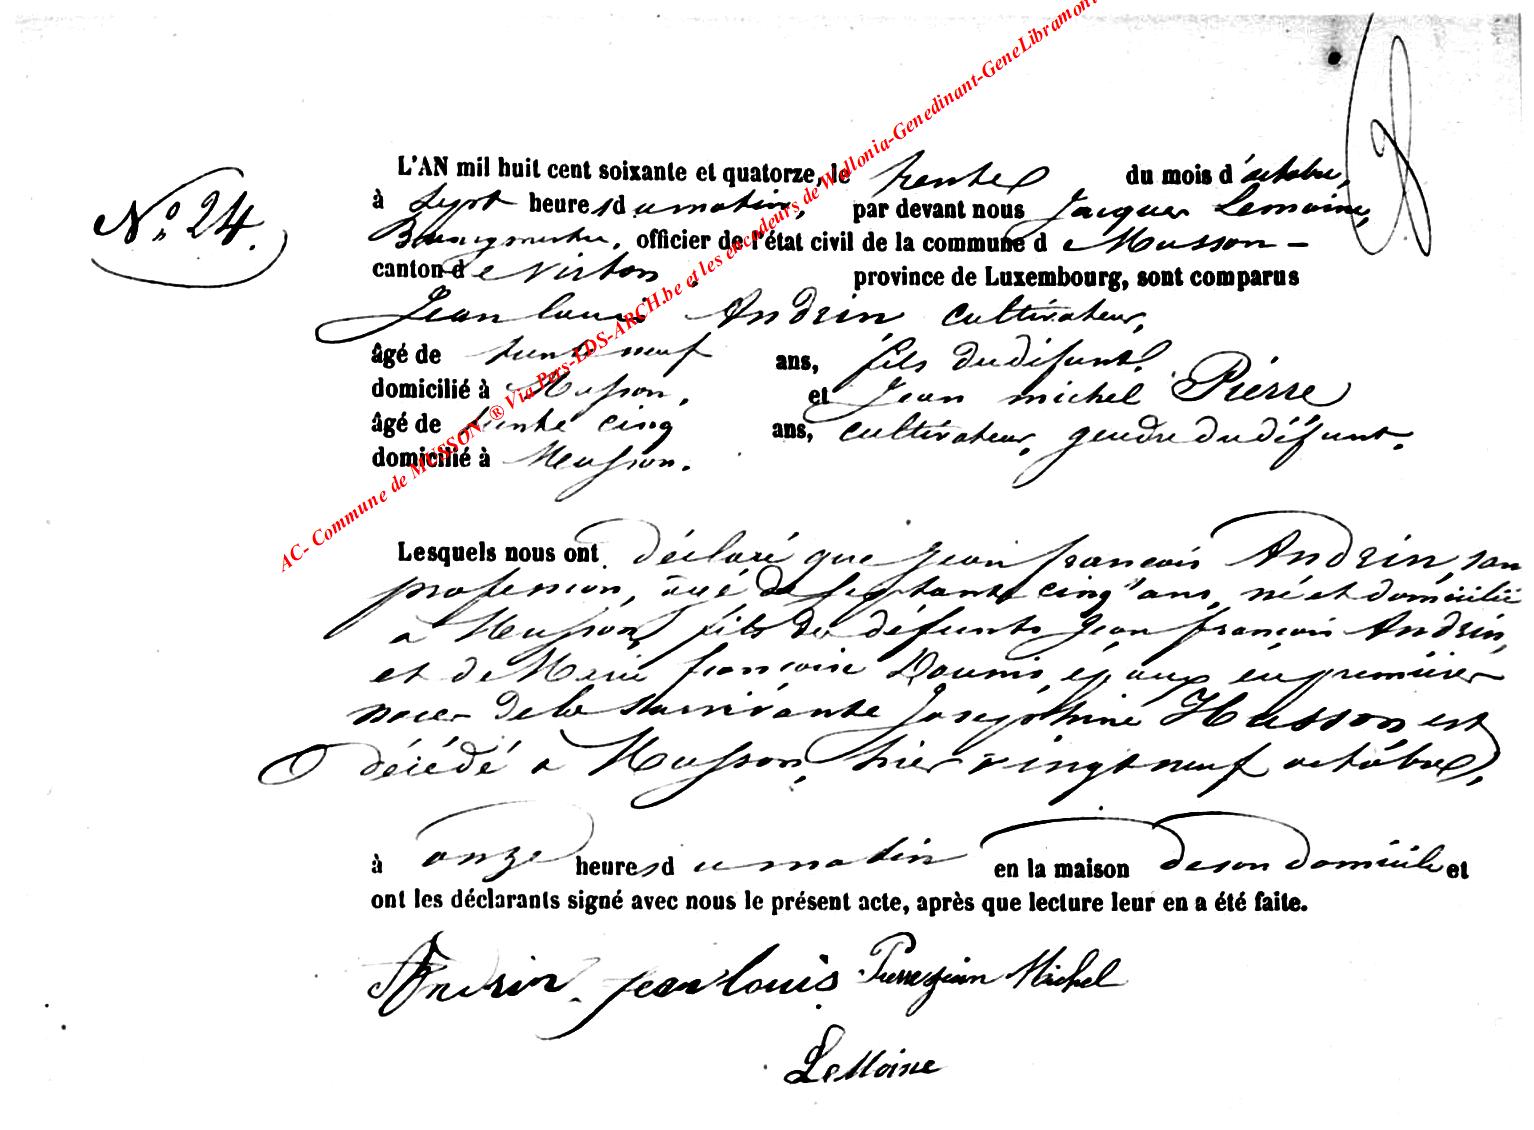 N° 24.
L'AN mil huit cent soixante et quatorze, le trente du mois d'octobre,
à sept heures du matin, par devant nous Jacques Lemoine,
Bourgmestre, officier de l'état civil de la commune de Musson –
canton de Virton. province de Luxembourg, sont comparus
Jean louis Andrin cultivateur,
âgé de trente neuf ans, fils du défunt.
domicilié à Musson, et Jean michel Pierre
âgé de trente cinq ans, cultivateur, gendre du défunt.
domicilié à Musson.
Lesquels nous ont déclaré que Jean françois Andrin, san
profession, âgé de septante cinq ans, né et domicilié
a Musson, fils de défunts Jean françois Andrin,
et de Marie françoise époux en premier
noces de la survivante Josephine Husson est
décédé a Musson, hier vingt neuf octobre,
à onze heures du matin en la maison de son domicile et
ont les déclarants signé avec nous le présent acte, après que lecture leur en a été faite.
Andrin jean louis Pierre jean Michel
LeMoine
AC- Commune de MUSSON-® Via Pers-EDS-ARCH.be et les encodeurs de Wallonia-Genedinant-GeneLibramont